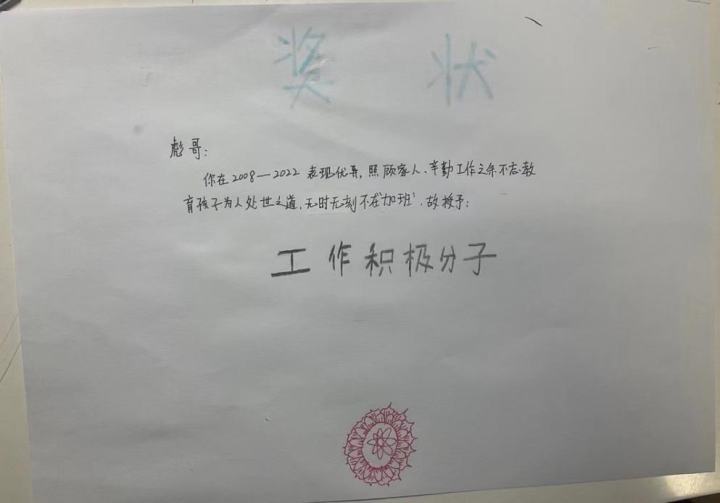 奖 状
彪哥：
你在2008—2022 表现优异，照顾家人、辛勤工作之余不忘教
育孩子为人处世之道，无时无刻不在"加班"，故授予：
工作积极分子